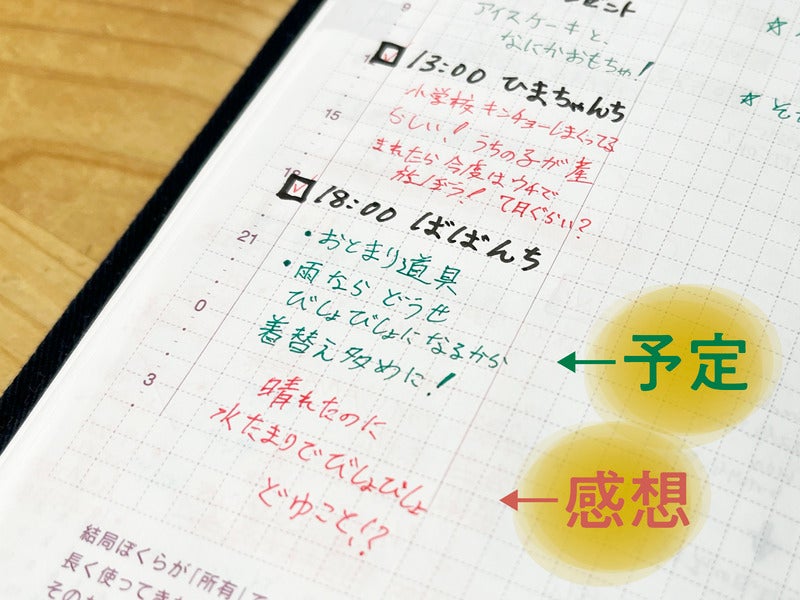 9
アイスケーキと、
なにかおもちゃ!
☑ 13:00 ひまちゃんち
小学校 キンチョーしまくってる
らしい! うちの子が産
まれたら今度はウチで
15
☑ 18:00 ばばんち
・おとまり道具
21
・雨なら どうせ
びしょびしょになるから
0
着替え多めに!
←予定
3
晴れたのに
水たまりでびしょびしょ
どゆこと!?
←感想
結局ぼくらが「所有」て
長く使ってき